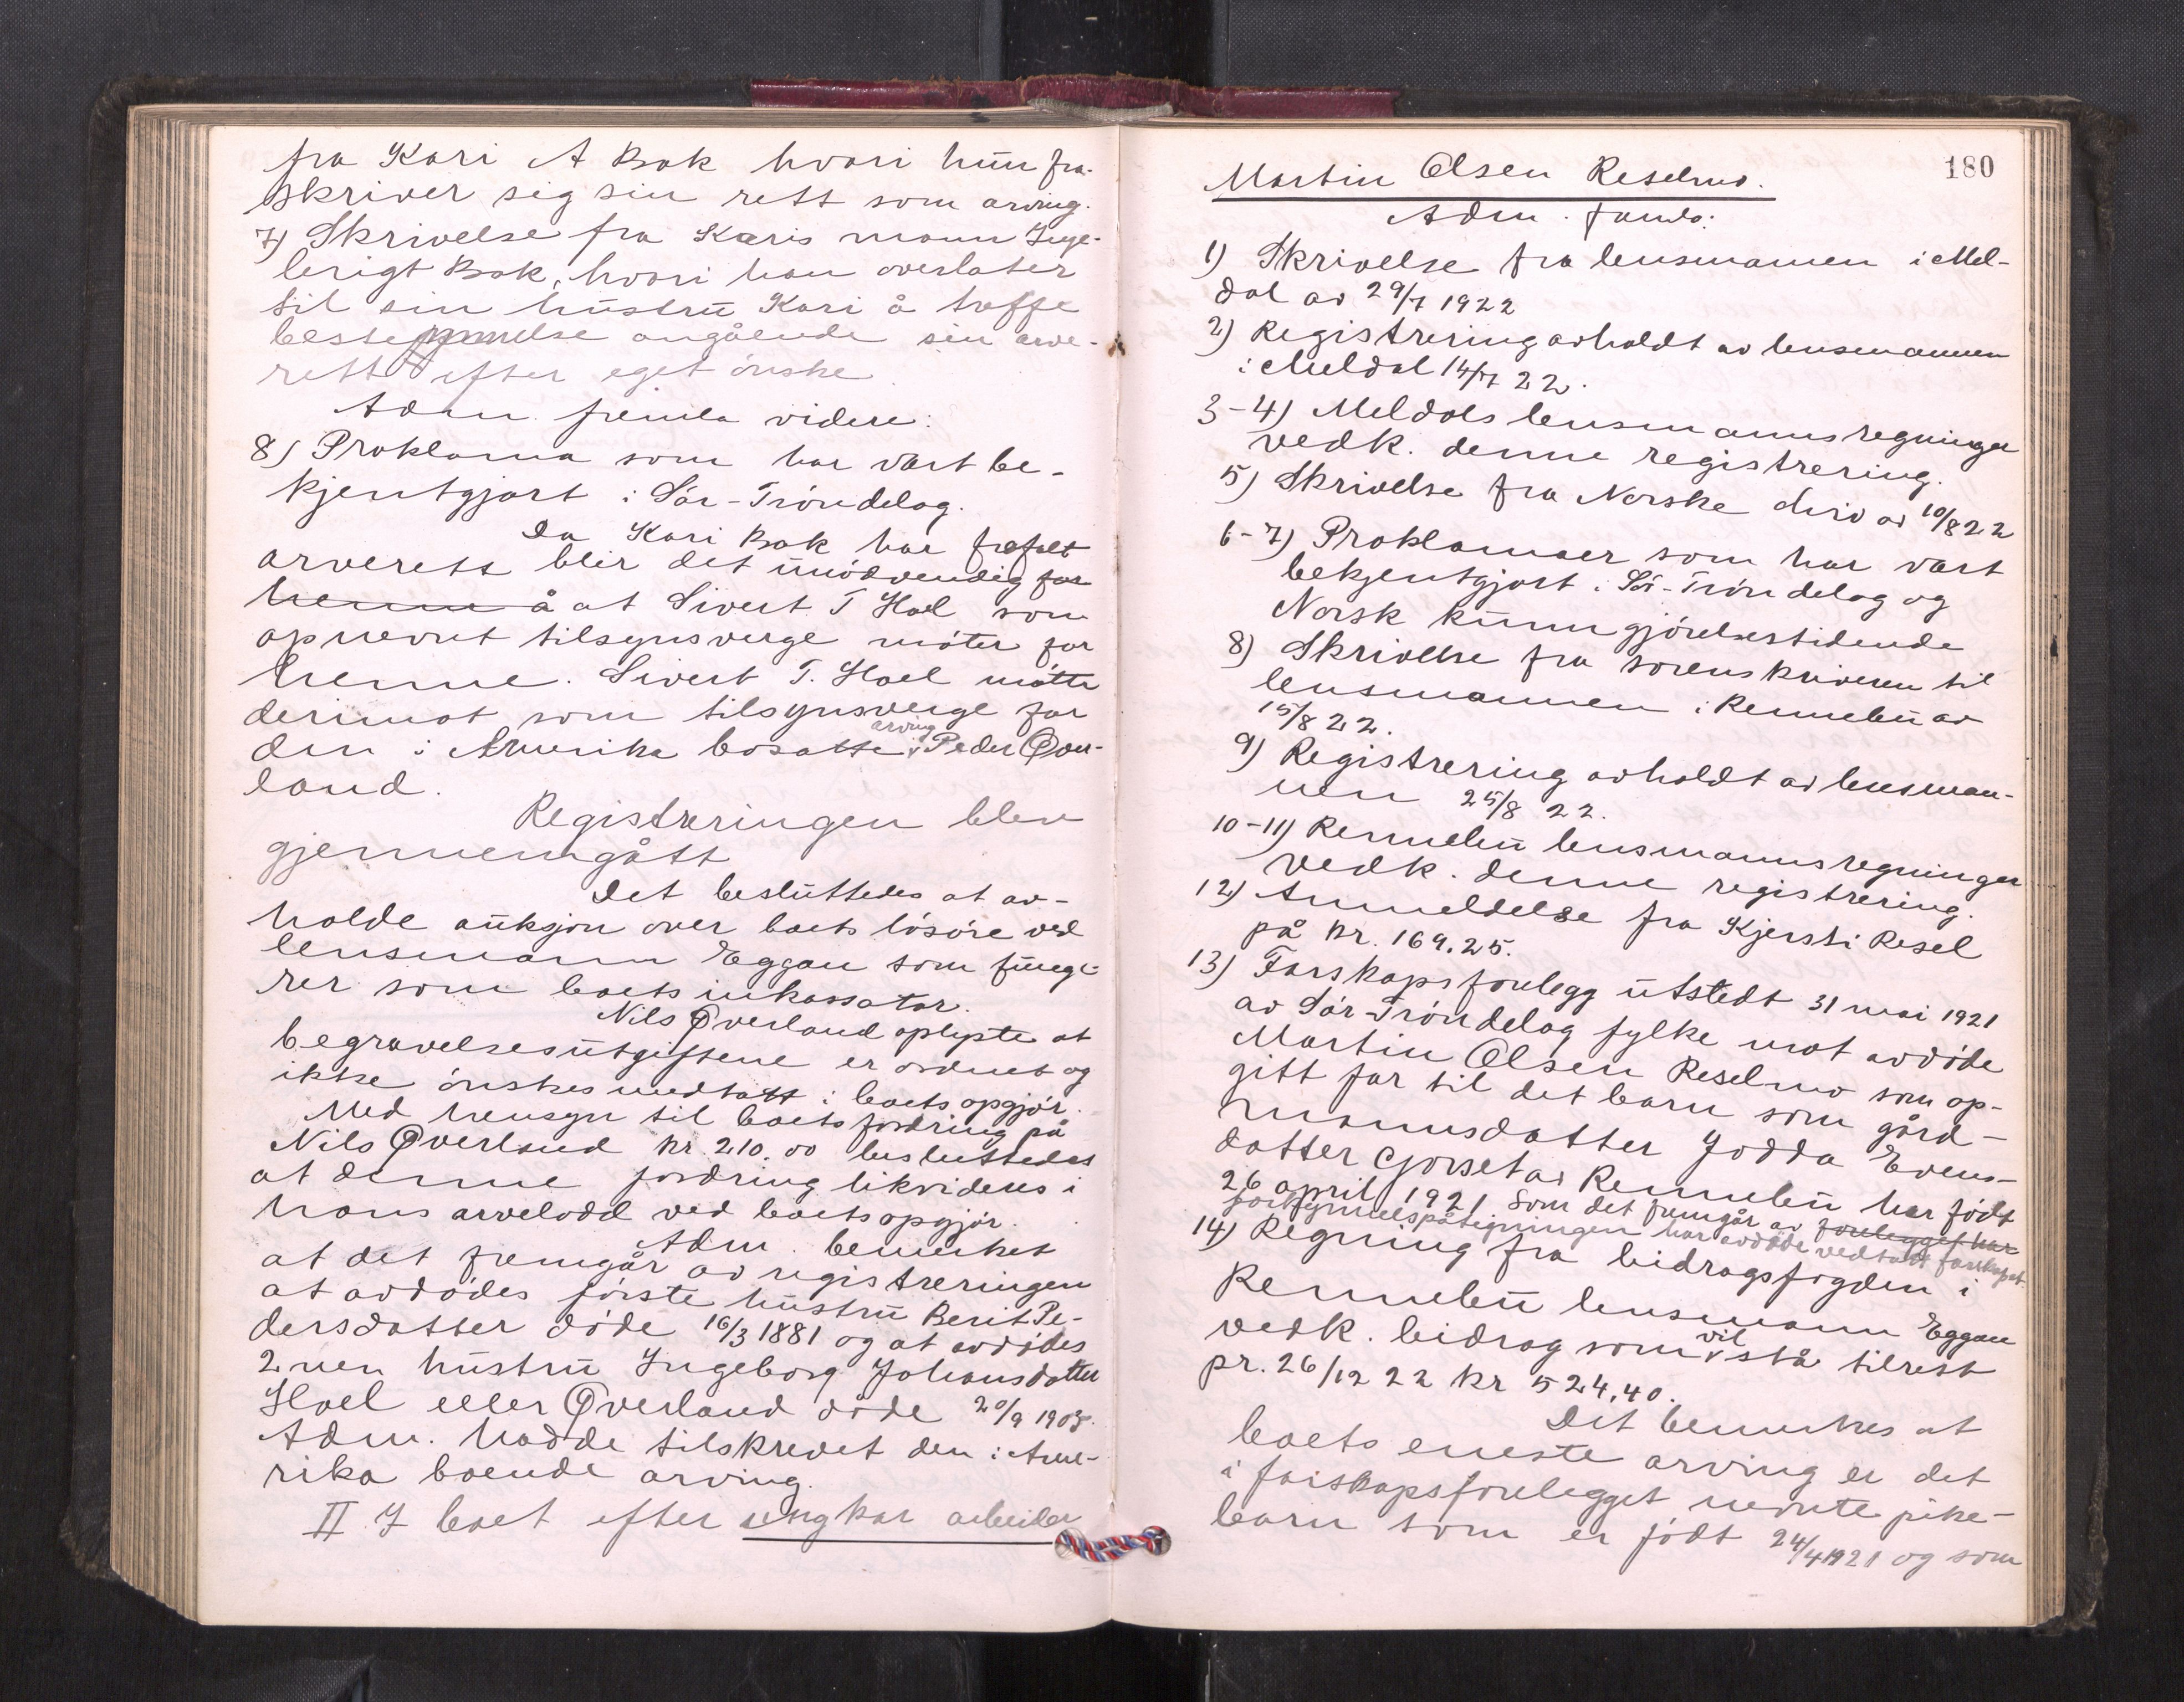 fra Kari A Bak hvori hun fra-
skriver sig sin rett som arving.
7) Skrivelse fra Karis mann Inge-
brigt Bak, hvori han overlater
til sin hustru Kari å treffe
bestemmelse angående sin arve-
rett efter eget ønske.
Adm. fremla videre:
8) Proklama som har vært be-
kjentgjort i Sør-Trøndelag.
Da Kari Bak har frafalt
arverett blir det unødvendig for
henne å at Sivert T Hoel som
opnevnt tilsynsverge møter for
henne. Sivert T. Hoel møtte
derimot som tilsynsverge for
arving
den i Amerika bosatte Peder Øver-
land.
Registreringen blev
gjennemgått
Det besluttedes at av-
holde auksjon over boets løsøre ved
lensmann Eggan som funge-
rer som boets inkassator.
Nils Øverland oplyste at
begravelsesutgiftene er ordnet og
ikke ønskes medtatt i boets opgjør.
Med hensyn til boets fordring på
Nils Øverland kr. 210.00 besluttedes
at denne fordring likvideres i
hans arvelodd ved boets opgjør.
Adm. bemerket
at det fremgår av registreringen
at avdødes første hustru Berit Pe-
dersdatter døde 16/3 1881 og at avdødes
2nen hustru Ingeborg Johansdatter
Hoel eller Øverland døde 20/9 1903.
Adm. hadde tilskrevet den i Ame-
rika boende arving.
II I boet efter ungkar arbeider
180
Martin Olsen Reselmo.
Adm. freml:
1) Skrivelse fra lensmannen i Mel-
dal av 29/7 1922
2) Registrering avholdt av lensmannen
i Meldal 14/7 22.
3-4) Meldals lensmannsregninger
vedk. denne registrering.
5) Skrivelse fra Norske Liv av 10/8 22
6-7) Proklamaer som har vært
bekjentgjort i Sør-Trøndelag og
Norsk kunngjørelsestidende
8) Skrivelse fra sorenskriveren til
lensmannen i Rennebu av
15/8 22.
9) Registrering avholdt av lensman-
nen 25/8 22.
10-11) Rennebu lensmannsregninger
vedk. denne registrering.
12) Anmeldelse fra Kjersti Resel
på kr. 169.25.
13) Farskapsforelegg utstedt 31 mai 1921
av Sør-Trøndelag fylke mot avdøde
Martin Olsen Reselmo som op-
gitt far til det barn som gård-
mannsdatter Jodda Evens-
datter Gorset av Rennebu har født
26 april 1921. Som det fremgår av forelegget har
forkynnelsespåtegningen har avdøde vedtatt farskapet
14) Regning fra bidragsfogden i
Rennebu lensmann Eggan
vil
vedk. bidrag som stå tilrest
pr. 26/12 22 kr 524.40.
Det bemerkes at
boets eneste arving er det
i farskapsforelegget nevnte pike-
barn som er født 24/4 1921 og som